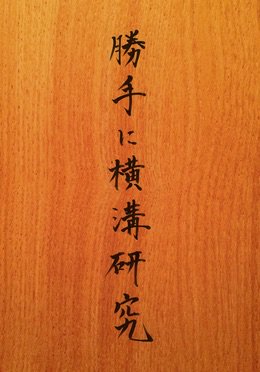 勝手に横溝研究